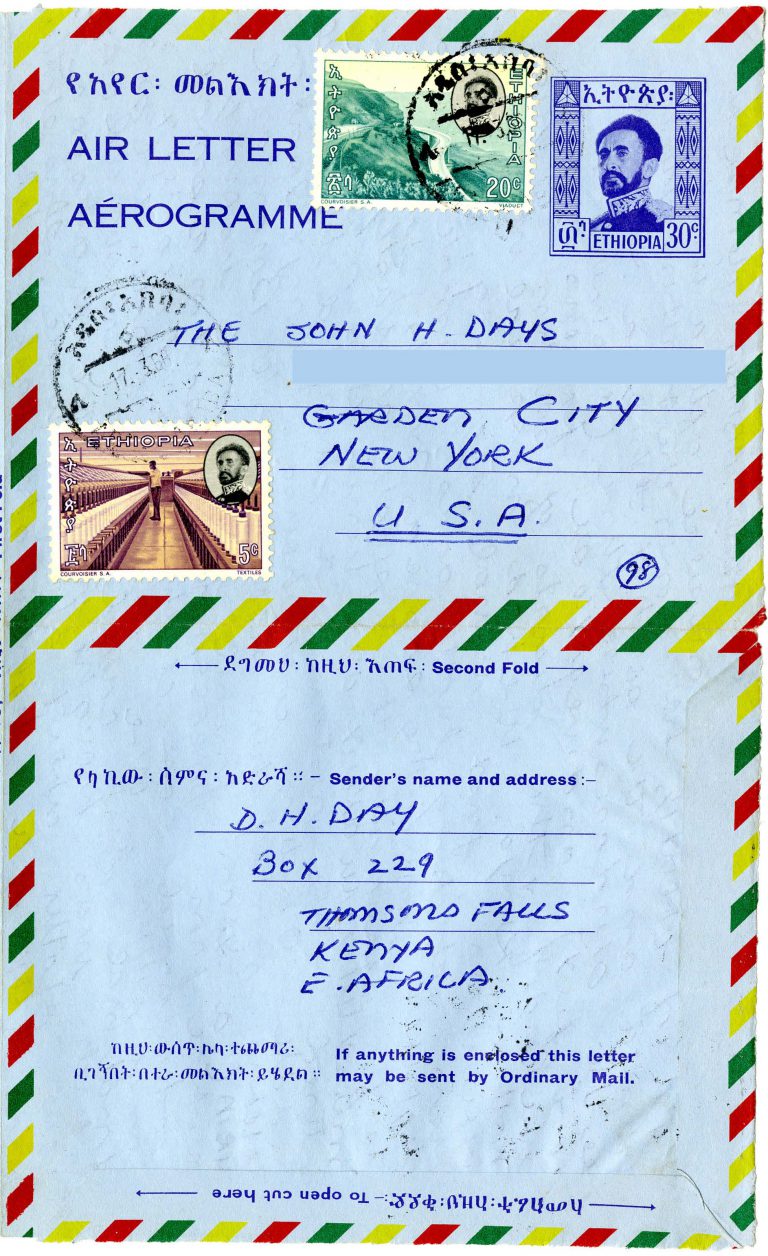 የአየር፡ መልእክት፡
AIR LETTER
AÉROGRAMME
ኢትዮጵያ
ETHIOPIA
፳ሳ
20c
COURVOISIER S.A.
VIADUCT
ኢትዮጵያ፡
፴ሳ
ETHIOPIA
30c
አዲስ፡አበባ
አዲስ፡አበባ
6
17.3.66
THE JOHN H. DAYS
GARDEN CITY
NEW YORK
U.S.A.
98
ETHIOPIA
ኢትዮጵያ
፭ሳ
5c
COURVOISIER S.A.
TEXTILES
ደግመህ፡ ከዚህ፡ እጠፍ፡ Second Fold
የላኪው፡ ስምና፡ አድራሻ፡፡ – Sender's name and address:–
D. H. DAY
Box 229
THOMSONS FALLS
KENYA
E. AFRICA.
ከዚህ፡ውስጥ፡ሌላ፡ተጨማሪ፡
ቢገኝበት፡በተራ፡መልእክት፡ይሄዳል፡፡
If anything is enclosed this letter
may be sent by Ordinary Mail.
To open cut here